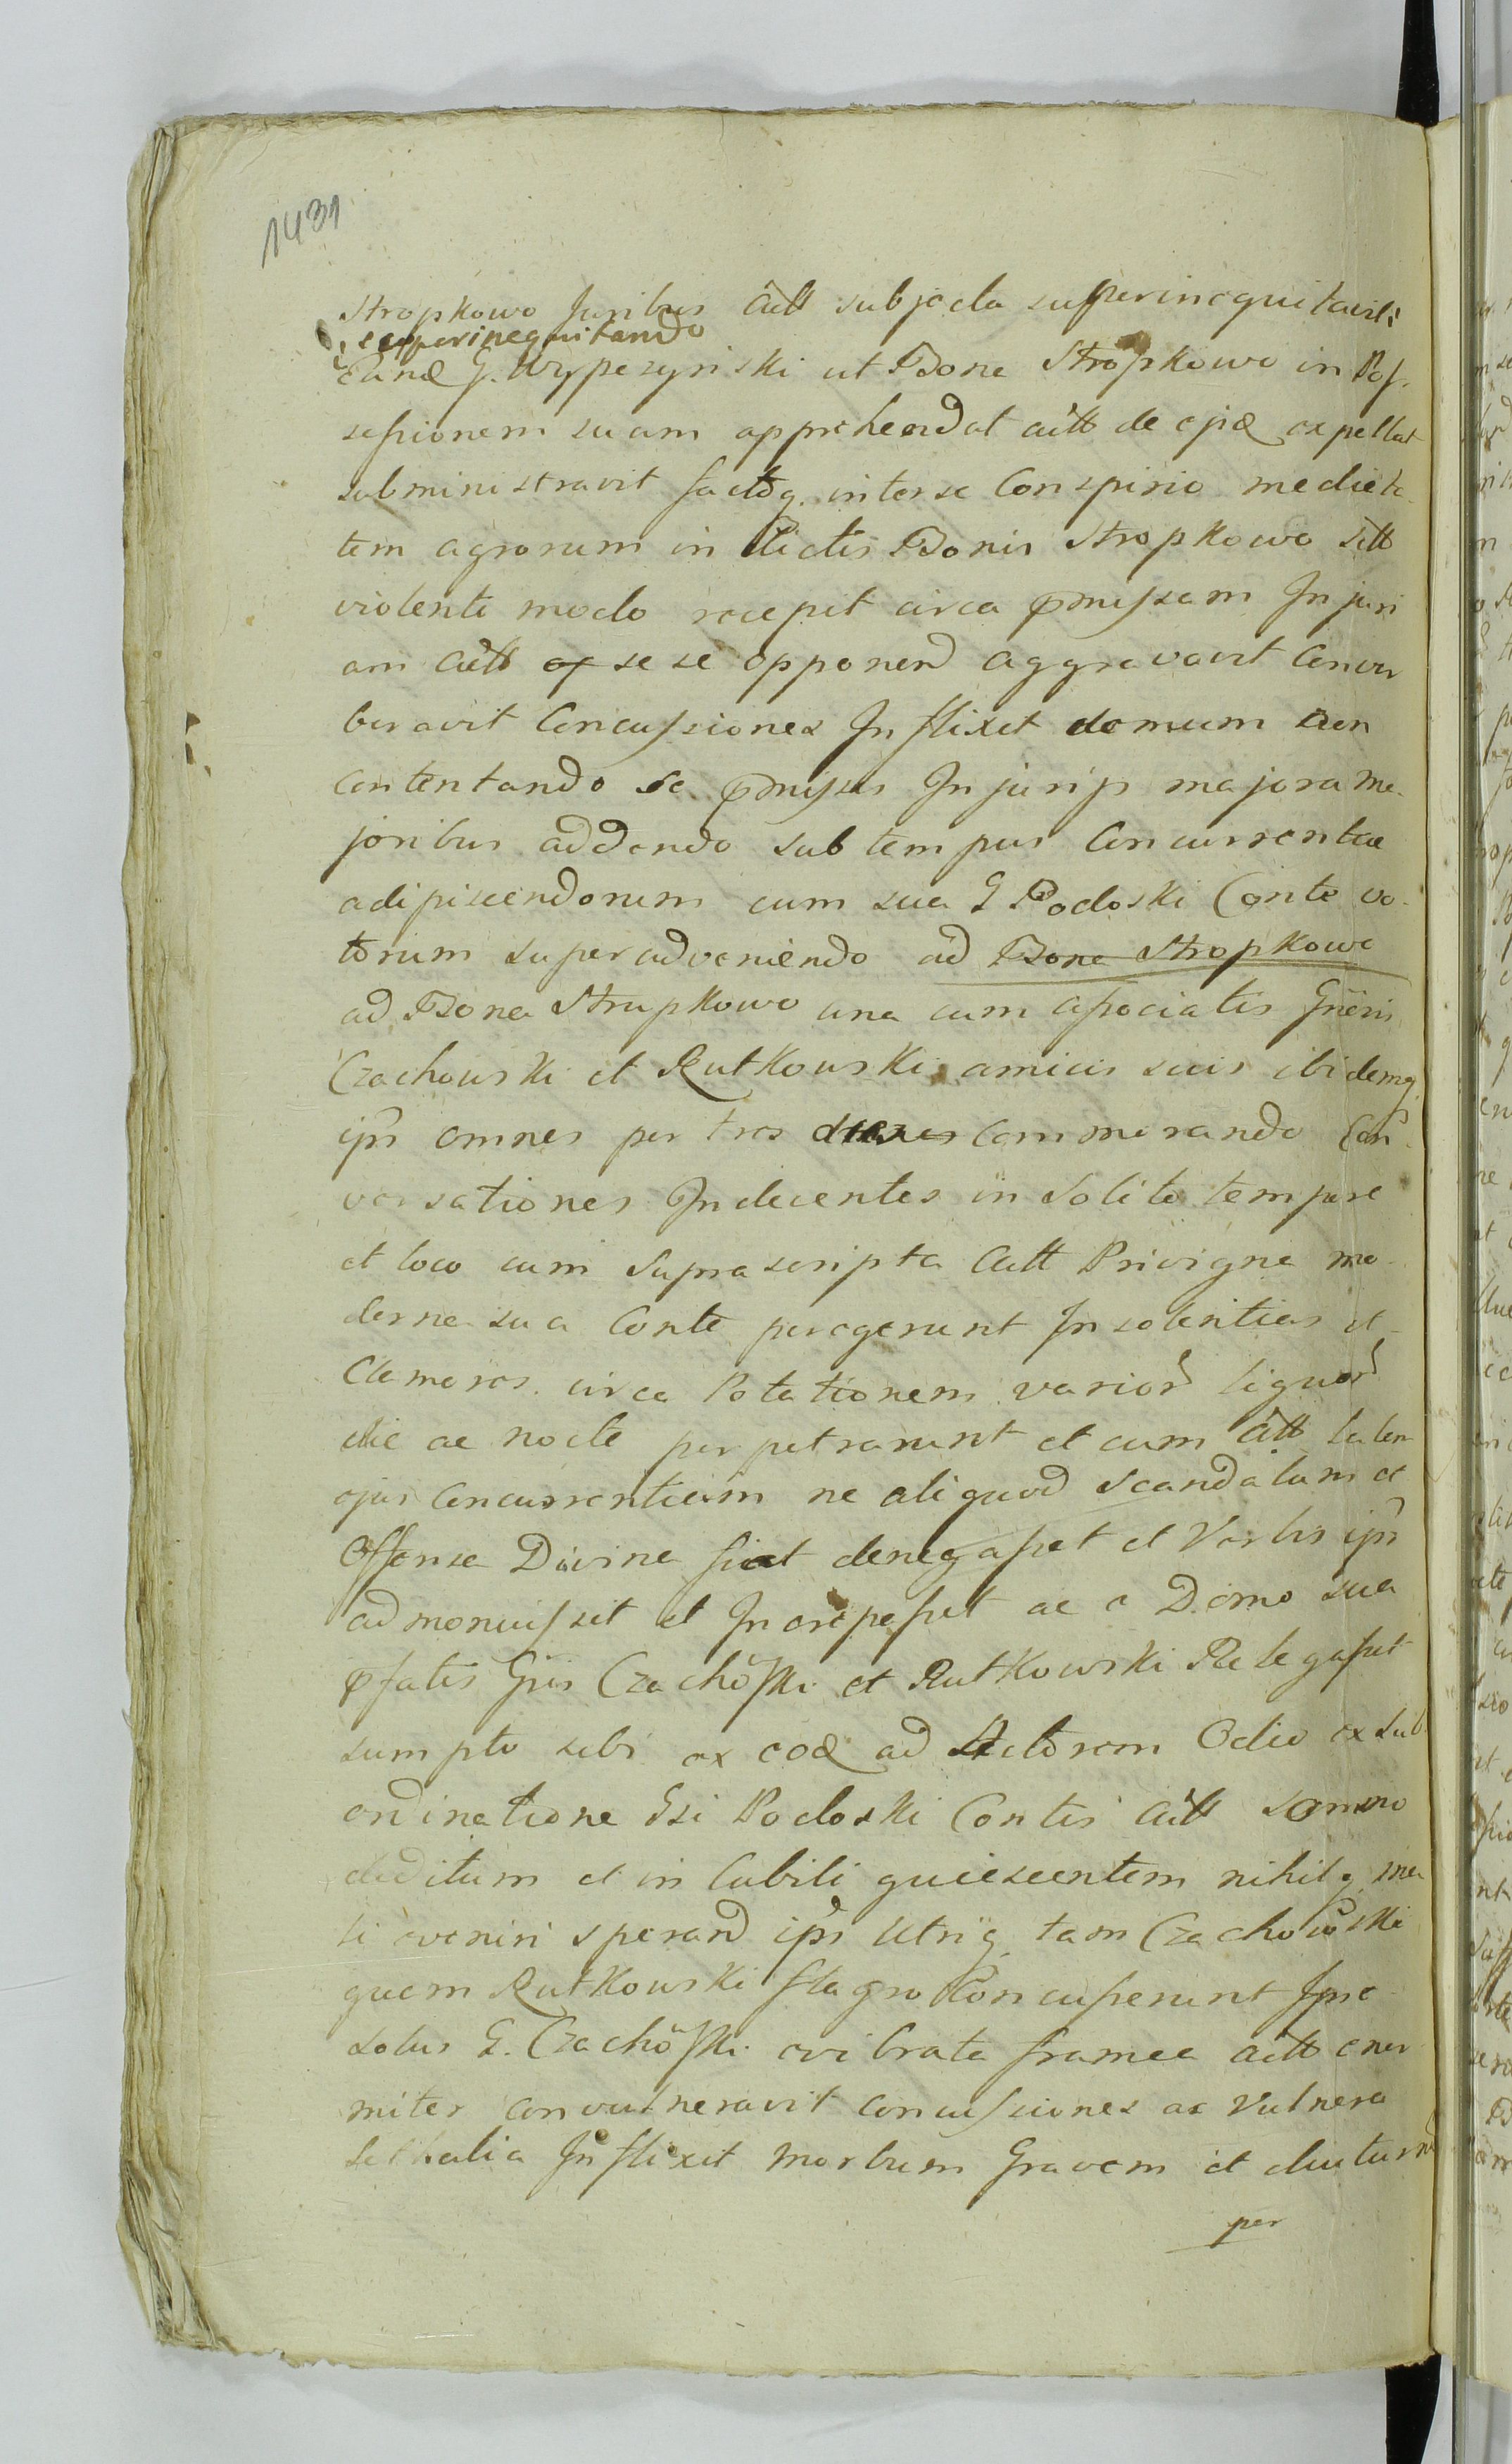 1431
Stropkowo Juribus Actt subjecta superinequitavit
superinequitando
Eund G. Wypeszynski ut Bona Stropkowo in Pos-
sessionem suam apprehendat actt de ejsd expellat
subministravit factoq. interse Conspirio medieta-
tem agrorum in dictis Bonis Stropkowo sitt
violento modo recepit circa pmissam Injuri
am Actt sese opponend aggravavit Conver
beravit Concussiones Inflixit demum non
contentando se pmissis Injurijs majora ma-
joribus addendo sub tempus Concurrentiae
adipiscendorum cum sua G Podoski Conte vo-
torum superadveniendo ad Bona Stropkowo
ad Bona Strupkowo una cum associatis Gneris
Czachowski et Rutkowski amicis suis ibidemq.
ipsi omnes per tres dies commorando Con-
versationes Indecentes insolito tempore
et loco cum Suprascripta Actt Privigna mo-
derna sua Conte peregerunt Insolentias et
Clamores circa Potationem varior liquor
die ac nocte perpetrarunt et cum actt talem
ejus Concurrentiam ne aliquod Scandalum et
Offensa Divina fiat denegasset et Verbis ipsos
admonuisset et Increpasset ac a Domo sua
pfatis Gnis Czachoski et Rutkowski Relegasset
sumpto sibi ex eod ad Actorem Odio ex sub
ordinatione Gsi Podoski Contis actt somno
deditum et in Cubili quiescentem nihilq. ma
li eveniri sperand ipsi Utriq. tam Czachowski
quam Rutkowski flagro Concusserunt Ipse
solus G. Czachoski evibrata framea actt enor
miter convulneravit concussiones ac Vulnera
Lethalia Inflixit morbum Gravem et diuturn
per